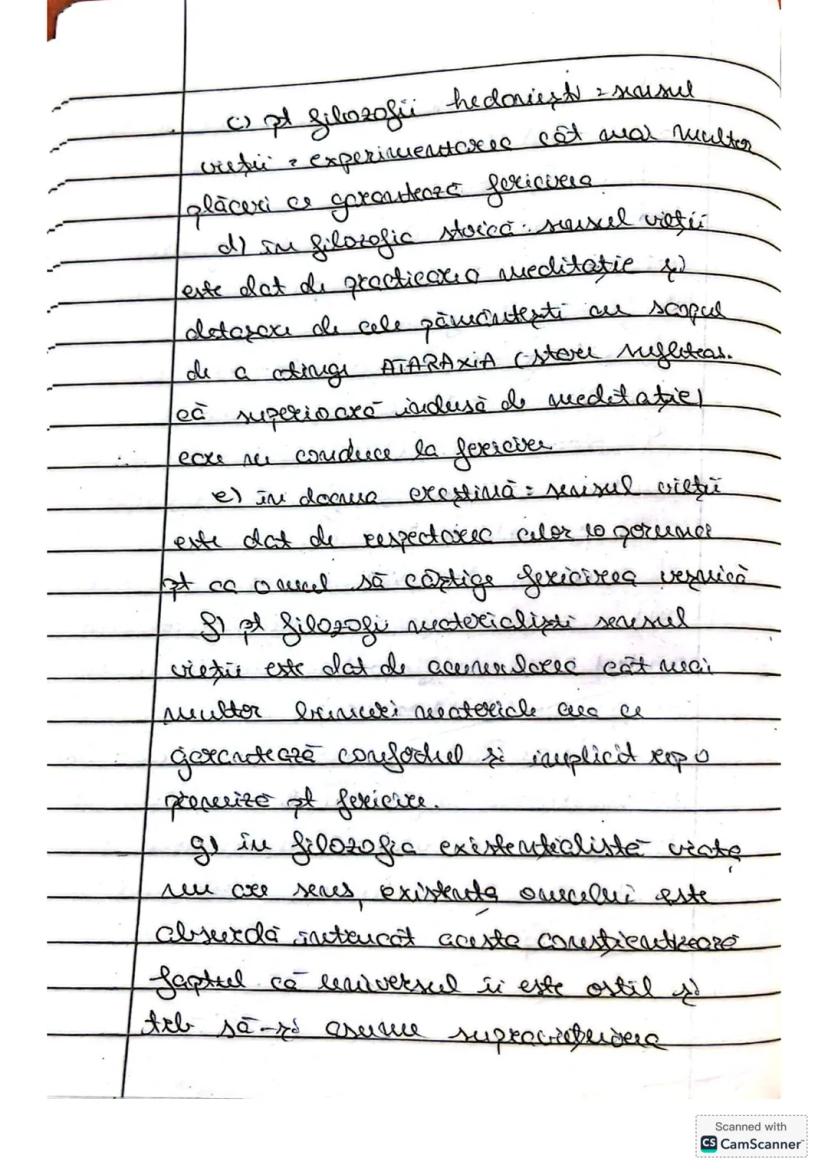 c) pt filozofii hedoniști = sensul
vieții = experimentarea cât mai multor
plăceri ce garantează fericirea
d) în filozofia stoică: sensul vieții
este dat de practicarea meditație și
detașare de cele pământești cu scopul
de a atinge ATARAXIA (stare sufleteas.
că superioară indusă de meditație)
care ne conduce la fericire
e) în dogma creștină = sensul vieții
este dat de respectarea celor 10 porunci
pt ca omul să câștige fericirea veșnică
f) pt filozofii materialiști sensul
vieții este dat de acumularea cât mai
multor bunuri materiale cea ce
garantează confortul și implicit rep o
premiză pt fericire.
g) în filozofia existențialistă viața
nu are sens, existența omului este
absurdă întrucât acesta conștientizează
faptul că universul îi este ostil și
trb să-și asume supraviețuirea
Scanned with
CS CamScanner